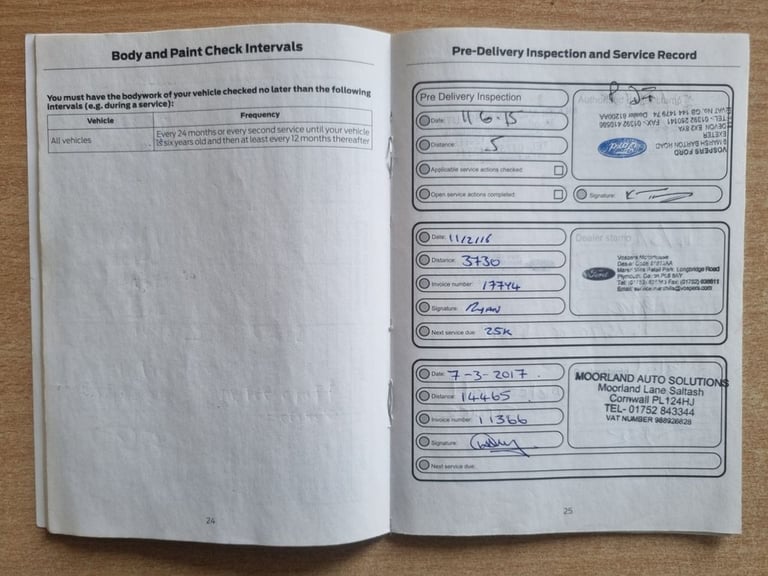 Body and Paint Check Intervals
You must have the bodywork of your vehicle checked no later than the following
intervals (e.g. during a service):
Vehicle Frequency
All vehicles Every 24 months or every second service until your vehicle
is six years old and then at least every 12 months thereafter
24
Pre-Delivery Inspection and Service Record
Pre Delivery Inspection
Date: 11 6.15
Distance: 5
Applicable service actions checked:
Open service actions completed:
Signature:
VOSPERS FORD
9 MARSH BARTON ROAD
EXETER
DEVON EX2 8YA
Ford
Date: 11/2/16
Distance: 3730
Invoice number: 17744
Signature: RYAN
Next service due: 25K
Dealer stamp
Ford
Vospers Motorhouse
Marsh Mills Retail Park, Longbridge Road
Date: 7-3-2017.
Distance: 14465
Invoice number: 11366
Signature:
Next service due:
MOORLAND AUTO SOLUTIONS
Moorland Lane Saltash
Cornwall PL124HJ
TEL- 01752 843344
VAT NUMBER 988926828
25